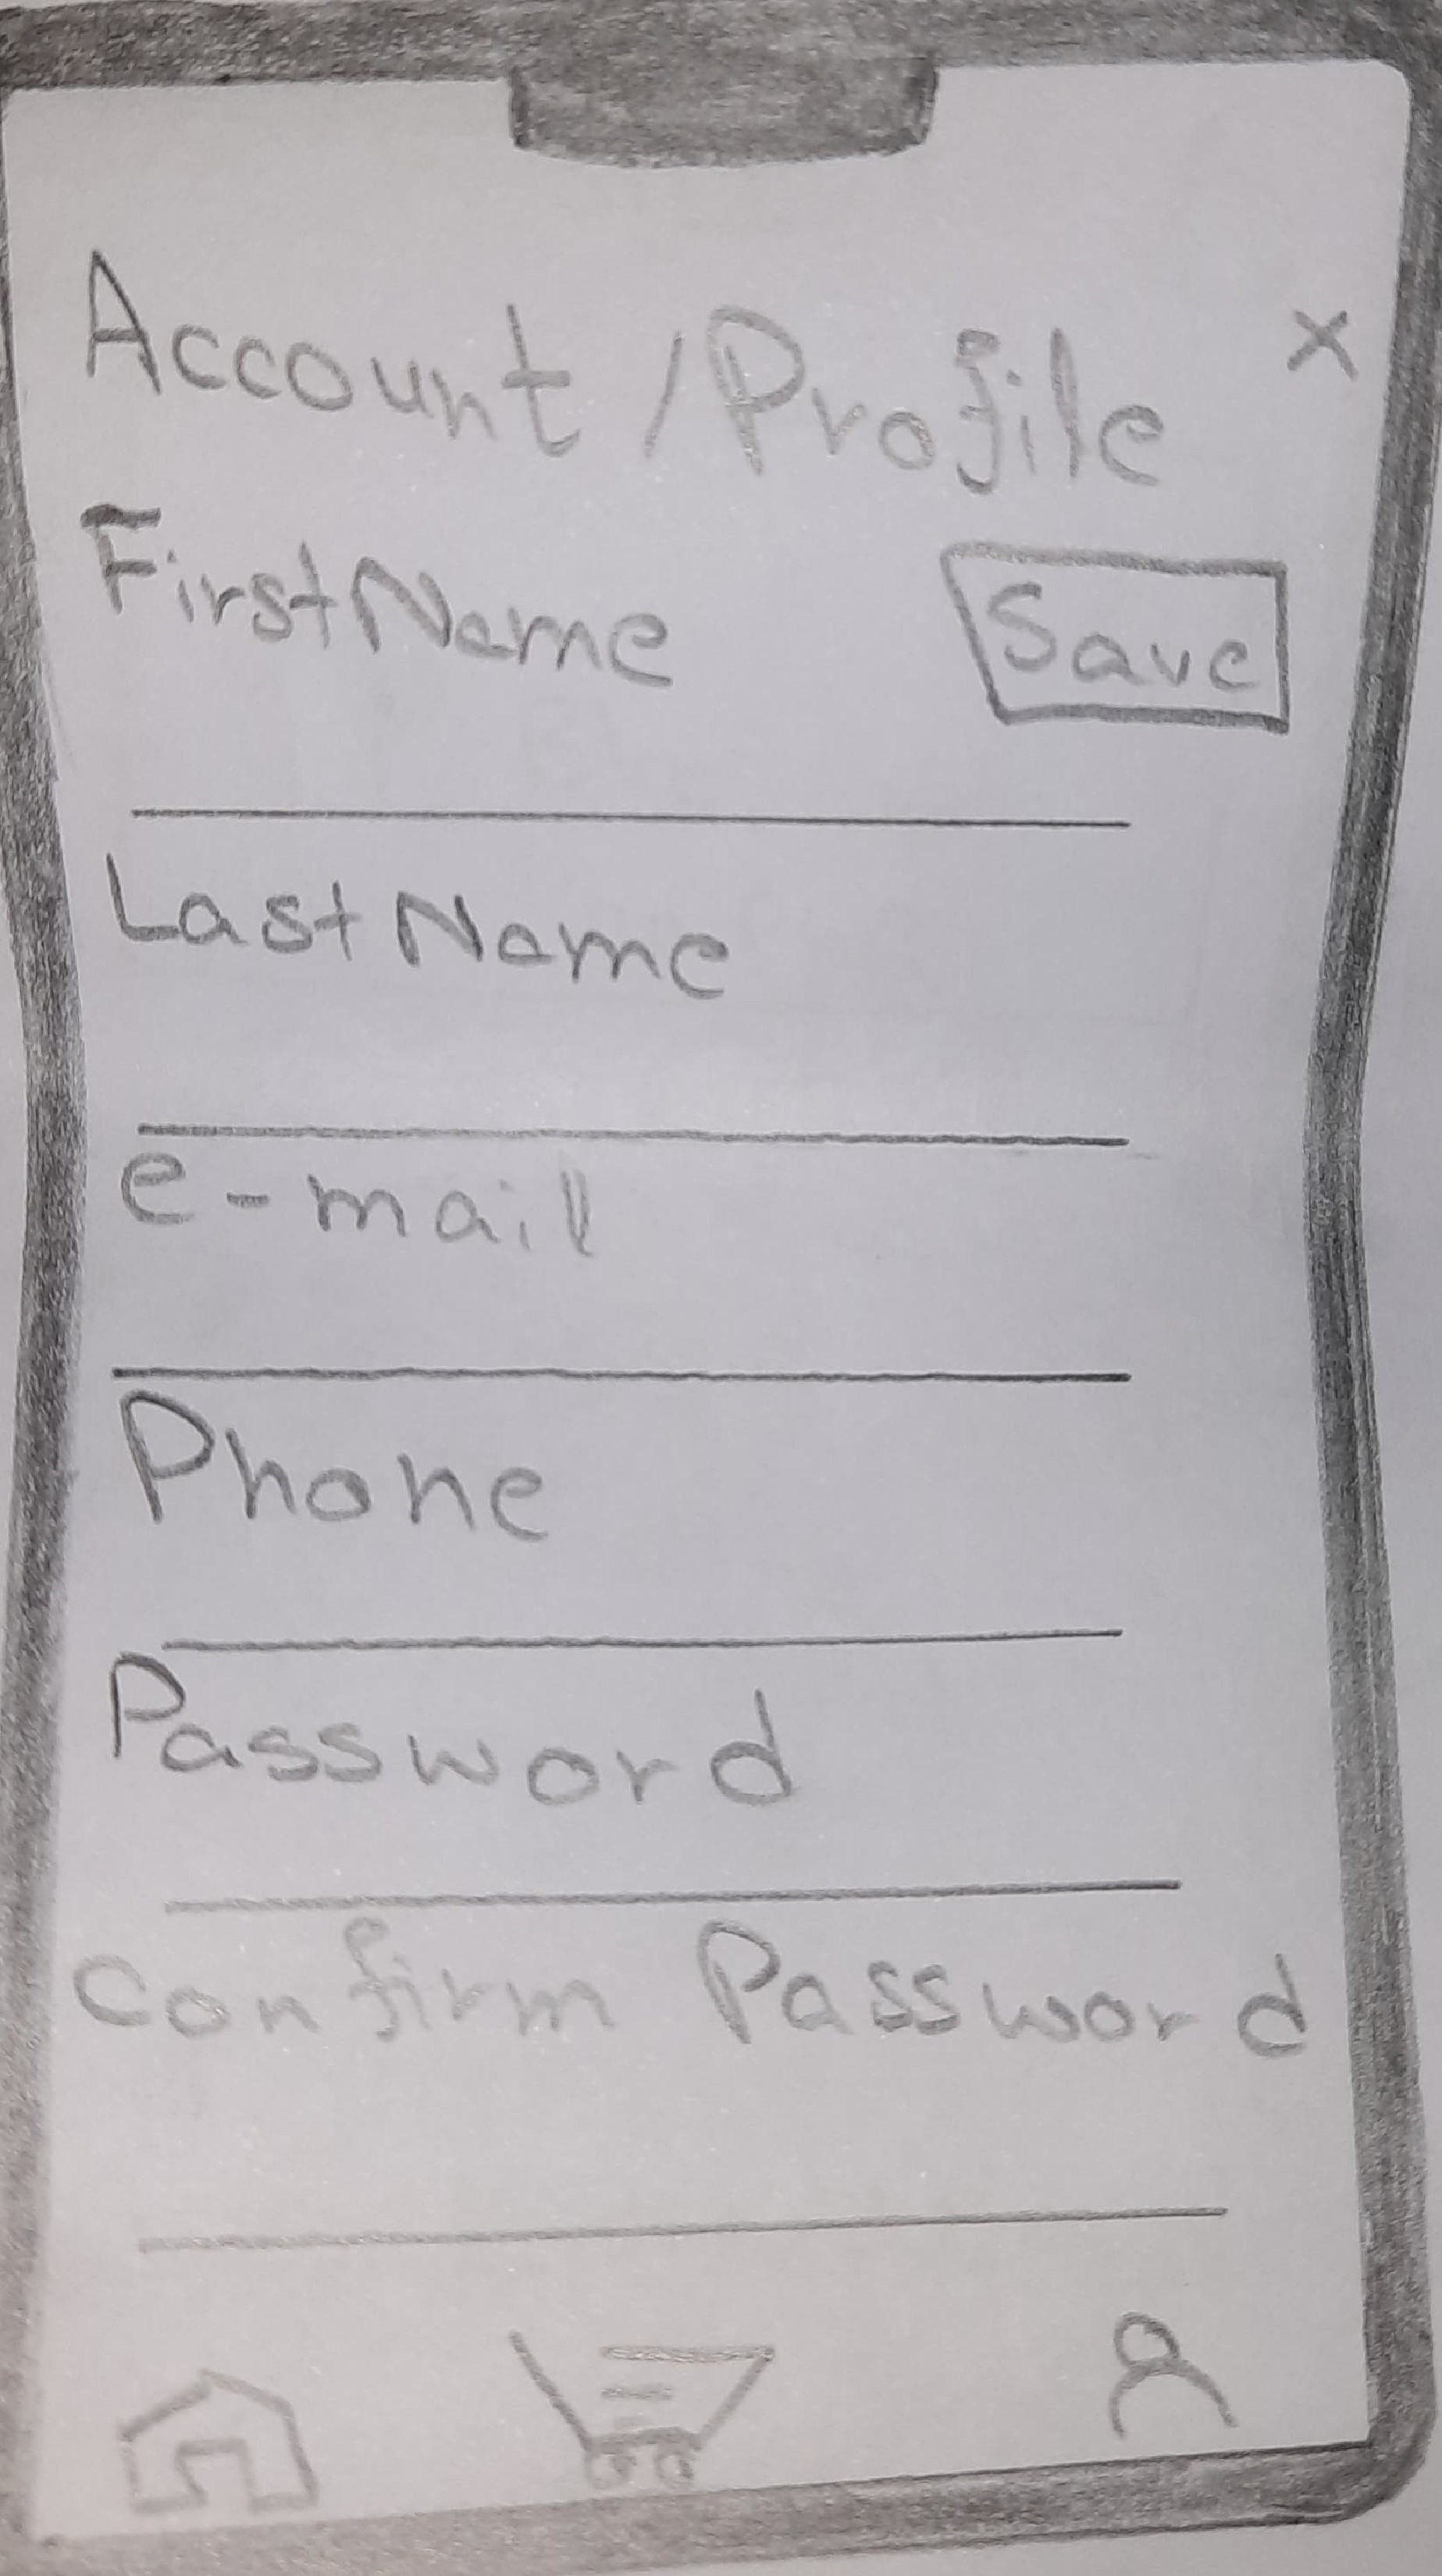 Account/Profile X
FirstName Save
Last Name
e-mail
Phone
Password
Confirm Password